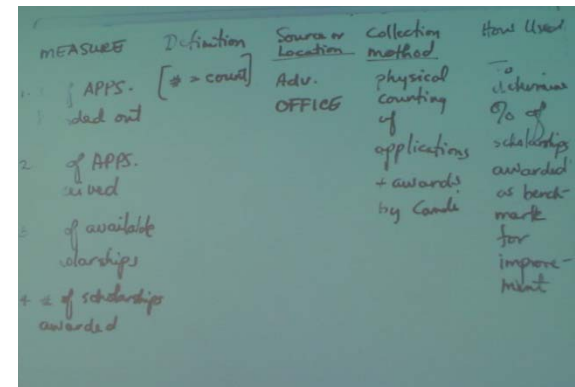 MEASURE Definition Source or Location Collection method How Used
1. APPS.
[# = count]
Adv.
OFFICE
physical
counting
of
applications
+ awards
by
to
determine
% of
scholarships
awarded
as bench-
mark
for
improve-
ment
out
2. of APPS.
3 of available
4 # of scholarships
awarded